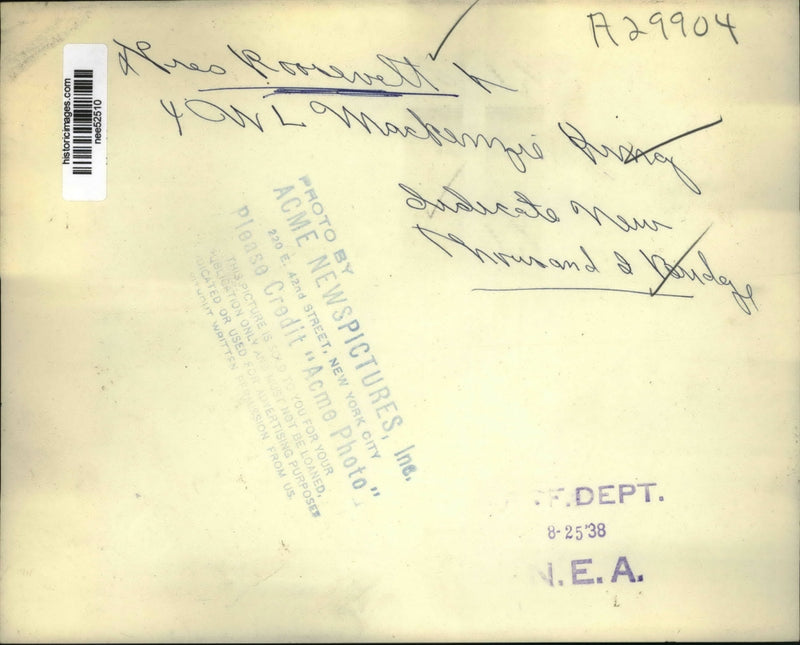 A29904
historicimages.com
nee52510
Pres Roosevelt
& W L Mackenzie King
Dedicate New
Thousand I Bridge
PHOTO BY
ACME NEWSPICTURES, Inc.
220 E. 42nd STREET, NEW YORK CITY
Please Credit "Acme Photo"
THIS PICTURE IS SOLD TO YOU FOR YOUR
PUBLICATION ONLY AND MUST NOT BE LOANED,
OR USED FOR ADVERTISING PURPOSES
WITHOUT WRITTEN PERMISSION FROM US.
F. DEPT.
8-25'38
N.E.A.